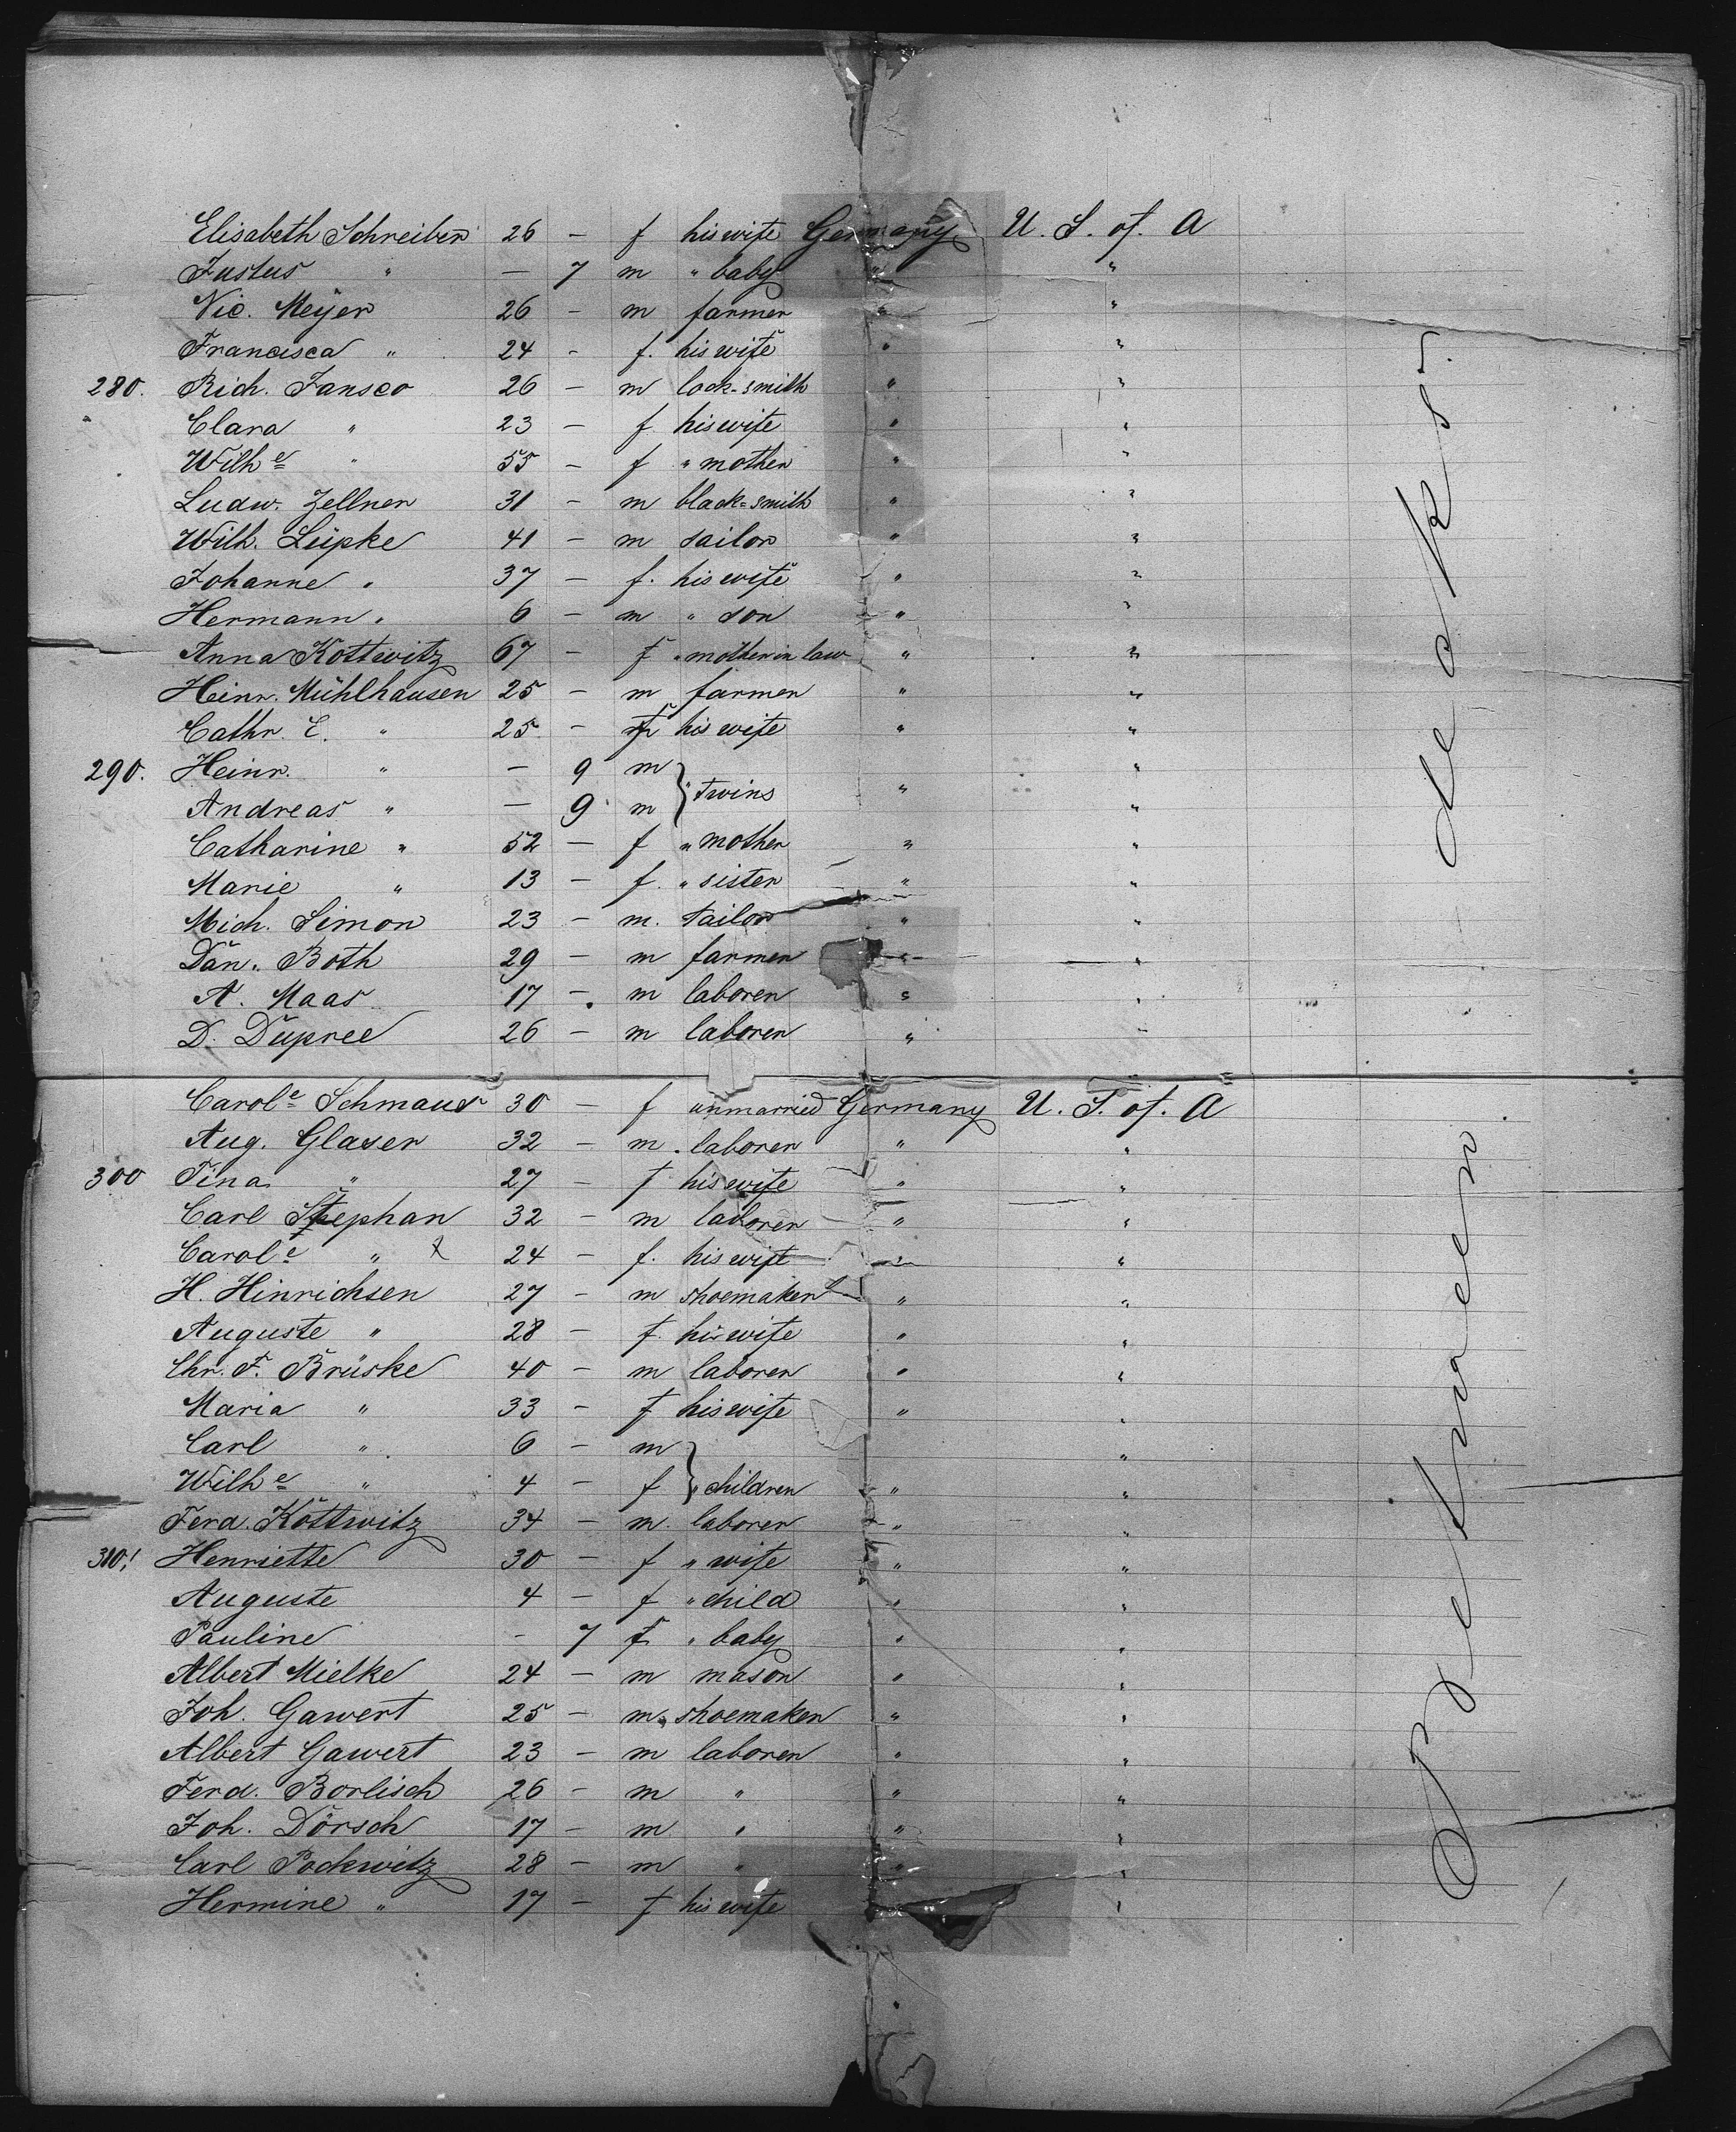 Elisabeth Schreiber 26 – f his wife Germany U. S. of. A
Justus " – 7 m " baby " "
Nic. Meÿer 26 – m farmer " "
Francisca " 24 – f. his wife " "
280. Rich. Fansco 26 – m lock-smith " "
Clara " 23 – f his wife " "
Wilhe " 55 – f " mother " "
Ludw. Zellner 31 – m black=smith " "
Wilh. Lüpke 41 – m sailor " "
Johanne " 37 – f. his wife " "
Hermann " 6 – m " son " "
Anna Kottwitz 67 – f " mother in law " "
Heinr. Mühlhausen 25 – m farmer " "
Cathr. E. " 25 – f his wife " "
290. Heinr. " – 9 m "
} " twins "
Andreas " – 9 m "
Catharine " 52 – f " mother " "
Marie " 13 – f. " sister " "
Mich. Simon 23 – m. tailor " "
Dan. Both 29 – m farmer " "
A. Maas 17 – m laborer " "
D. Düpree 26 – m laborer " "
Carole Schmaus 30 – f unmarried Germany U. S. of. A
Aug. Glaser 32 – m. laborer " "
300 Tina " 27 – f his wife " "
Carl Stephan 32 – m laborer " "
Carole " 24 – f. his wife " "
H. Hinrichsen 27 – m shoemaker " "
Auguste " 28 – f. his wife " "
Chr. F. Brüske 40 – m laborer " "
Maria " 33 – f his wife " "
Carl " 6 – m "
Wilhe " 4 – f } " children " "
Ferd. Kottwitz 34 – m. laborer " "
310. Henriette 30 – f " wife " "
Auguste 4 – f " child " "
Pauline – 7 f " baby " "
Albert Mielke 24 – m mason " "
Joh. Gawert 25 – m. shoemaker " "
Albert Gawert 23 – m laborer " "
Ferd. Borlisch 26 – m " " "
Joh. Dörsch 17 – m " " "
Carl Pockwitz 28 – m " " "
Hermine " 17 – f his wife " "
between decks.